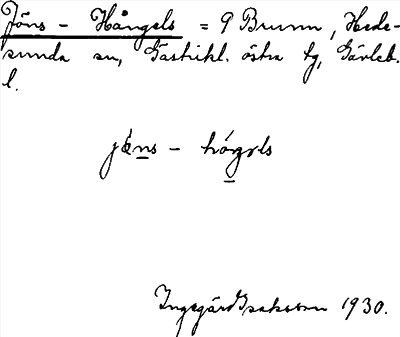 Jöns - Hångels = 9 Brunn, Hede-
sunda sn, Gästrikl. östra tg, Gävleb.
l.
jöns - hóŋəls
Ingegärd Isaksson 1930.